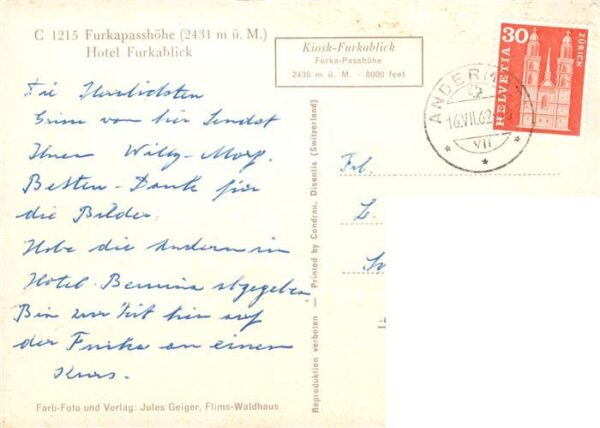 C 1215 Furkapasshöhe (2431 m ü. M.)
Hotel Furkablick
Kiosk-Furkablick
Furka-Passhöhe
2436 m ü. M. - 8000 feet
30
HELVETIA
ZÜRICH
ANDERM
16.VII.62
VII
Die Herzlichsten
von hier Sendet
Ihnen Willy
Besten - Dank für
die Bilder.
Habe die Andern im
Hotel - Bernina abgegeben
Bin zur Zeit hier auf
der Furka an einem
Kurs.
Frl.
Reproduktion verboten — Printed by Condrau, Disentis (Switzerland)
Farb-Foto und Verlag: Jules Geiger, Flims-Waldhaus